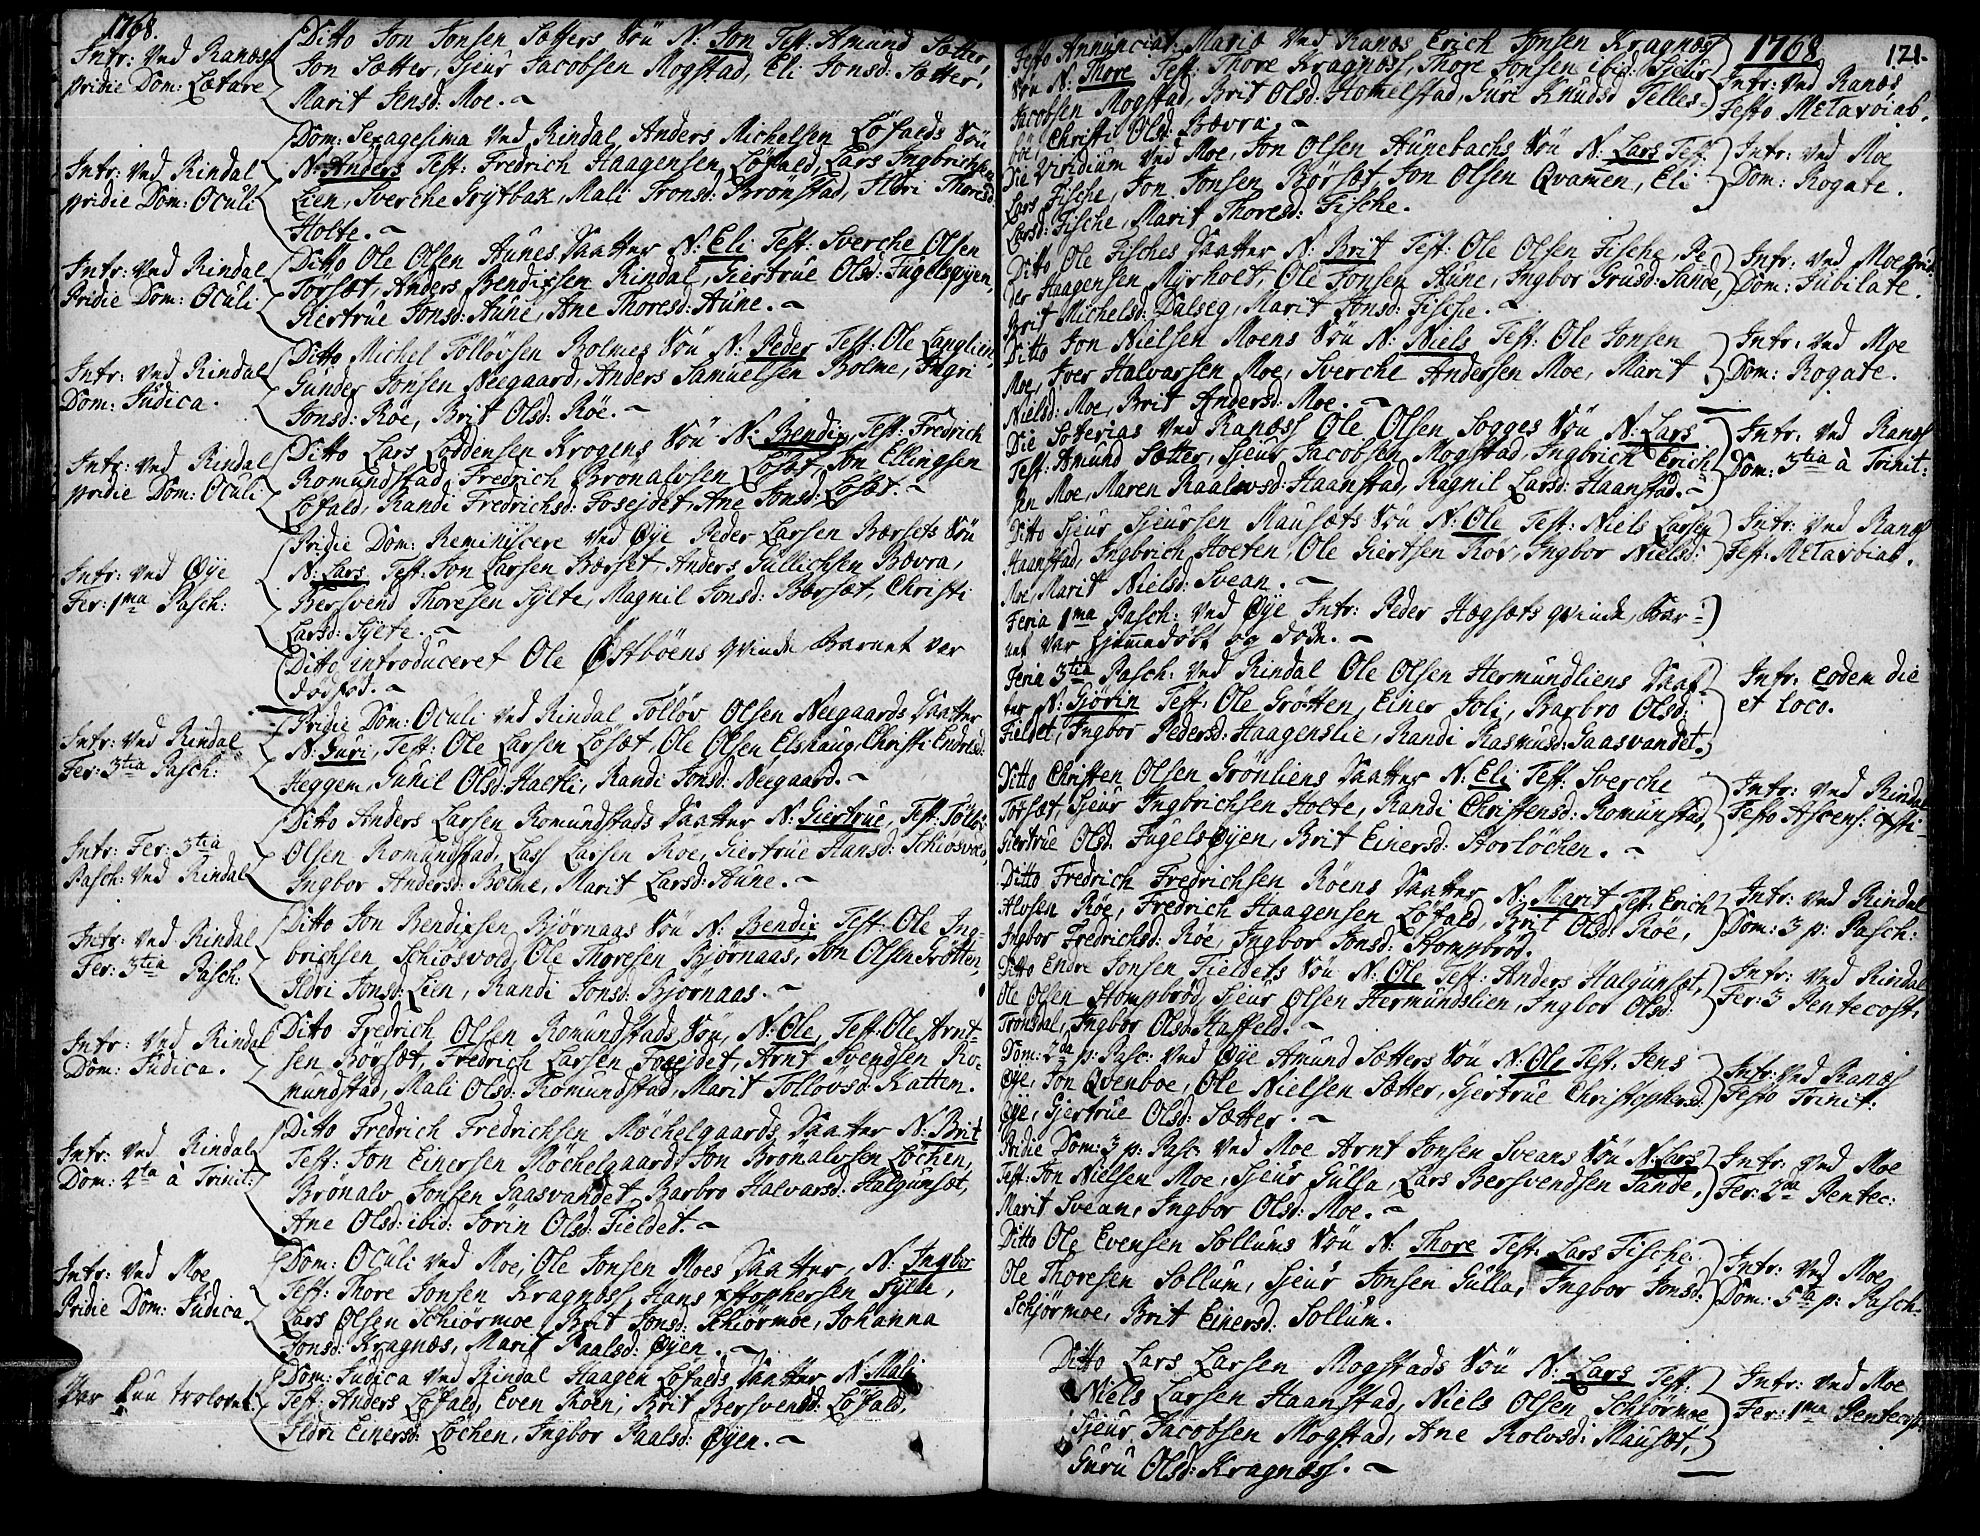 1768.
Intr: Ved Ranæs
pridie Dom: Lætare
Ditto Jon Jonsen Sætters Sön N: Jon Test: Amund Sætter,
Jon Sætter, Sjeur Jacobsen Mogstad, Eli Jonsd: Sætter,
Marit Jensd: Moe. ~
Intr: Ved Rindal
pridie Dom: Oculi
Dom: Sexagesima Ved Rindal Anders Michelsen Löfalds Sön
N: Anders Test: Fredrich Haagensen Löfald, Lars Ingbrichsen
Lien, Sverche Grytbak, Mali Tronsd: Brönstad, Ildri Thoresd:
Holte. ~
Intr: Ved Rindal
Pridie Dom: Oculi
Ditto Ole Olsen Aunes Daatter N: Eli Test: Sverche Olsen
Torsæt, Anders Bendixsen Rindal, Giertrue Olsd: Fugelsøyen,
Giertrue Jonsd: Aune, Ane Thoresd: Aune. ~
Intr: Ved Rindal
Dom: Judica.
Ditto Michel Tollövsen Bolmes Sön N: Peder Test: Ole Langlien
Gunder Jonsen Neegaard, Anders Samuelsen Bolme, Ingri
Jonsd: Röe, Brit Olsd: Röe. ~
Intr: Ved Rindal
pridie Dom: Oculi
Ditto Lars Loddensen Krogens Sön N: Bendix, Test: Fredrich
Romundstad, Fredrich Brönalvsen Löset, Jon Ellingsen
Löfald, Randi Fredrichsd: Fosejdet, Ane Jonsd: Löset. ~
Intr: Ved Øye
Fer: 1ma Pasch:
Pridie Dom: Reminiscere Ved Øye Peder Larsen Bærsets Sön
N: Lars Test: Jon Larsen Bærset, Anders Gullichsen Bævra,
Bersvend Thoresen Sylte, Magnil Jonsd: Bærsæt, Christi
Larsd: Sylte. ~
Ditto introduceret Ole Østböens qvinde Barnet var
dödfød. ~
Intr: Ved Rindal
Fer: 3tia Pasch:
Pridie Dom: Oculi Ved Rindal Tollöv Olsen Neegaards Daatter
N: Guri, Test: Ole Larsen Löset, Ole Olsen Elshaug, Christi Endresd:
Heggem, Gunil Olsd: Hacki, Randi Jonsd: Neegaard. ~
Intr: Fer: 3tia
Pasch: Ved Rindal
Ditto Anders Larsen Romundstads Daatter N: Giertrue, Test: Tollöv
Olsen Romundstad, Lass Lassen Roe, Giertrue Hansd: Schiösvold,
Ingbor Andersd: Bolme, Marit Larsd: Aune. ~
Intr: Ved Rindal
Fer: 3tia Pasch:
Ditto Jon Bendixsen Björnaas Sön N: Bendix Test: Ole Ing-
brichsen Schiösvold, Ole Thoresen Björnaas, Jon Olsen Grötten,
Ildri Jonsd: Lien, Randi Jonsd: Björnaas. ~
Intr: Ved Rindal
Dom: Judica.
Ditto Fredrich Olsen Romundstads Sön, N: Ole, Test: Ole Arnt-
sen Börsæt, Fredrich Larsen Fosejdet, Arnt Svendsen Ro-
mundstad, Mali Olsd: Romundstad, Marit Tollövsd: Katten.
Intr: Ved Rindal
Dom: 4ta à Trinit:
Ditto Fredrich Fredrichsen Möchelgaards Daatter N: Brit
Test: Jon Einersen Möchelgaard, Jon Brönalvsen Löchen,
Brönalv Jonsen Gaasvandet, Barbro Halvarsd: Halgunset,
Ane Olsd: ibid: Jörin Olsd: Fieldet. ~
Intr: Ved Moe
Pridie Dom: Judica
Dom: Oculi Ved Moe, Ole Jonsen Moes Daatter, N: Ingbor
Test: Thore Jonsen Kragnöss, Hans Xstophersen Sylte,
Lars Olsen Schiörmoe Brit Jonsd: Schiörmoe, Johanna
Jonsd: Kragnæs, Marit Paalsd: Øyen. ~
Var kun trolovet.
Dom: Judica Ved Rindal Haagen Löfalds Daatter N: Mali
Test: Anders Löfald, Even Röen, Brit Bersvensd: Löfald,
Ildri Einersd: Löchen, Ingbor Paalsd: Øyen. ~
1768 121.
Festo Annunciat: Mariæ Ved Ranæs Erich Jonsen Kragnæss
Sön N: Thore Test: Thore Kragnæss, Thore Jonsen ibid: Sjeur
Jacobsen Mogstad, Brit Olsd: Homelstad, Guri Knudsd Telles-
böe, Christi Olsd: Bævra. ~
Intr: Ved Ranæs
Festo Metavoiab.
Die Viridium Ved Moe, Jon Olsen Hünebachs Sön N: Lars Test:
Lars Fische, Jon Jonsen Börset Jon Olsen Qvammen, Eli
Larsd: Fische, Marit Thoresd: Fische.
Intr: Ved Moe
Dom: Rogate.
Ditto Ole Fisches Daatter N: Brit Test: Ole Olsen Fische, Pe-
der Haagensen Myrholt, Ole Jonsen Aune, Ingbor Grusd: Sande,
Brit Michelsd: Dalseg, Marit Jonsd: Fische. ~
Intr: Ved Moe prid:
Dom: Jubilate.
Ditto Jon Nielsen Moens Sön N: Niels Test: Ole Jonsen
Moe, Iver Halvarsen Moe, Sverche Andersen Moe, Marit
Nielsd: Moe, Brit Andersd: Moe. ~
Intr: Ved Moe
Dom: Rogate.
Die Soterias Ved Ranæss Ole Olsen Sogges Sön N: Lars
Test: Amund Sætter, Sjeur Jacobsen Mogstad, Ingbrich Erich-
sen Moe, Maren Raalevsd: Haanstad, Ragnil Larsd: Haanstad. ~
Intr: Ved Ranæs
Dom: 3tia à Trinit:
Ditto Sjeur Sjeursen Mausæts Sön N: Ole Test: Niels Larsen
Haanstad, Ingbrich Hoeten, Ole Giertsen Röv, Ingbor Nielsd:
Moe, Marit Nielsd: Svean. ~
Intr: Ved Ranæs
Fest: Metavoiab.
Feria 1ma Pasch: Ved Øye Intr: Peder Hægsæts qvinde, Bar-
net var hjemmedöbt og döde. ~
Feria 3tia Pasch: Ved Rindal Ole Olsen Hermundliens Daat-
ter N: Gjörin Test: Ole Grötten, Einer Joli, Barbro Olsd:
Fieldet, Ingbor Pedersd: Haagenslie, Randi Rasmusd: Gaasvandet.
Intr: eodem die
et loco.
Ditto Christen Olsen Grönliens Daatter N: Eli Test: Sverche
Torsæt, Sjeur Ingbrichsen Holte, Randi Christensd: Romunstad,
Giertrue Olsd. Fugelsøyen, Brit Einersd: Storlöchen. ~
Intr: Ved Rindal
Festo Ascens: Xsti
Ditto Fredrich Fredrichsen Röens Daatter N: Marit Test: Erich
Alvsen Röe, Fredrich Haagensen Löfald, Brit Olsd: Röe,
Ingbor Fredrichsd: Röe, Ingbor Jonsd: Stompbröd.
Intr: Ved Rindal
Dom: 3 p: Pasch:
Ditto Endre Jonsen Fieldets Sön N: Ole Test: Anders Halgunset,
Ole Olsen Stompbröd, Sjeur Olsen Hermundslien, Ingbor Olsd:
Tronsdal, Ingbor Olsd: Haffeld. ~
Intr: Ved Rindal
Fer: 3 Pentecost.
Dom: 2da p: Pasc: Ved Øye Amund Sætters Sön N: Ole Test: Jens
Øye, Jon Qvenboe, Ole Nielsen Sætter, Gjertrue Christophersd:
Øye, Gjertrue Olsd: Sætter. ~
Intr: Ved Ranæs
Festo Trinit:
Pridie Dom: 3 p: Pasc: Ved Moe Arnt Jonsen Sveans Sön N: Lars
Test: Jon Nielsen Moe, Sjeur Gulla, Lars Bersvendsen Sande,
Marit Svean, Ingbor Olsd: Moe. ~
Intr: Ved Moe
Fer: 2da Pentec:
Ditto Ole Evensen Sollums Sön N: Thore Test: Lars Fische
Ole Thoresen Sollum, Sjeur Jonsen Gulla, Ingbor Jonsd:
Schjörmoe, Brit Einersd: Sollum.
Intr: Ved Moe
Dom: 5ta p: Pasch:
Ditto Lars Larsen Mogstads Sön N: Lars Test:
Niels Larsen Haanstad, Niels Olsen Schjörmoe
Sjeur Jacobsen Mogstad, Ane Rolvsd: Mauset,
Guru Olsd: Kragnæss. ~
Intr: Ved Moe
Fer: 1ma Pentecost: